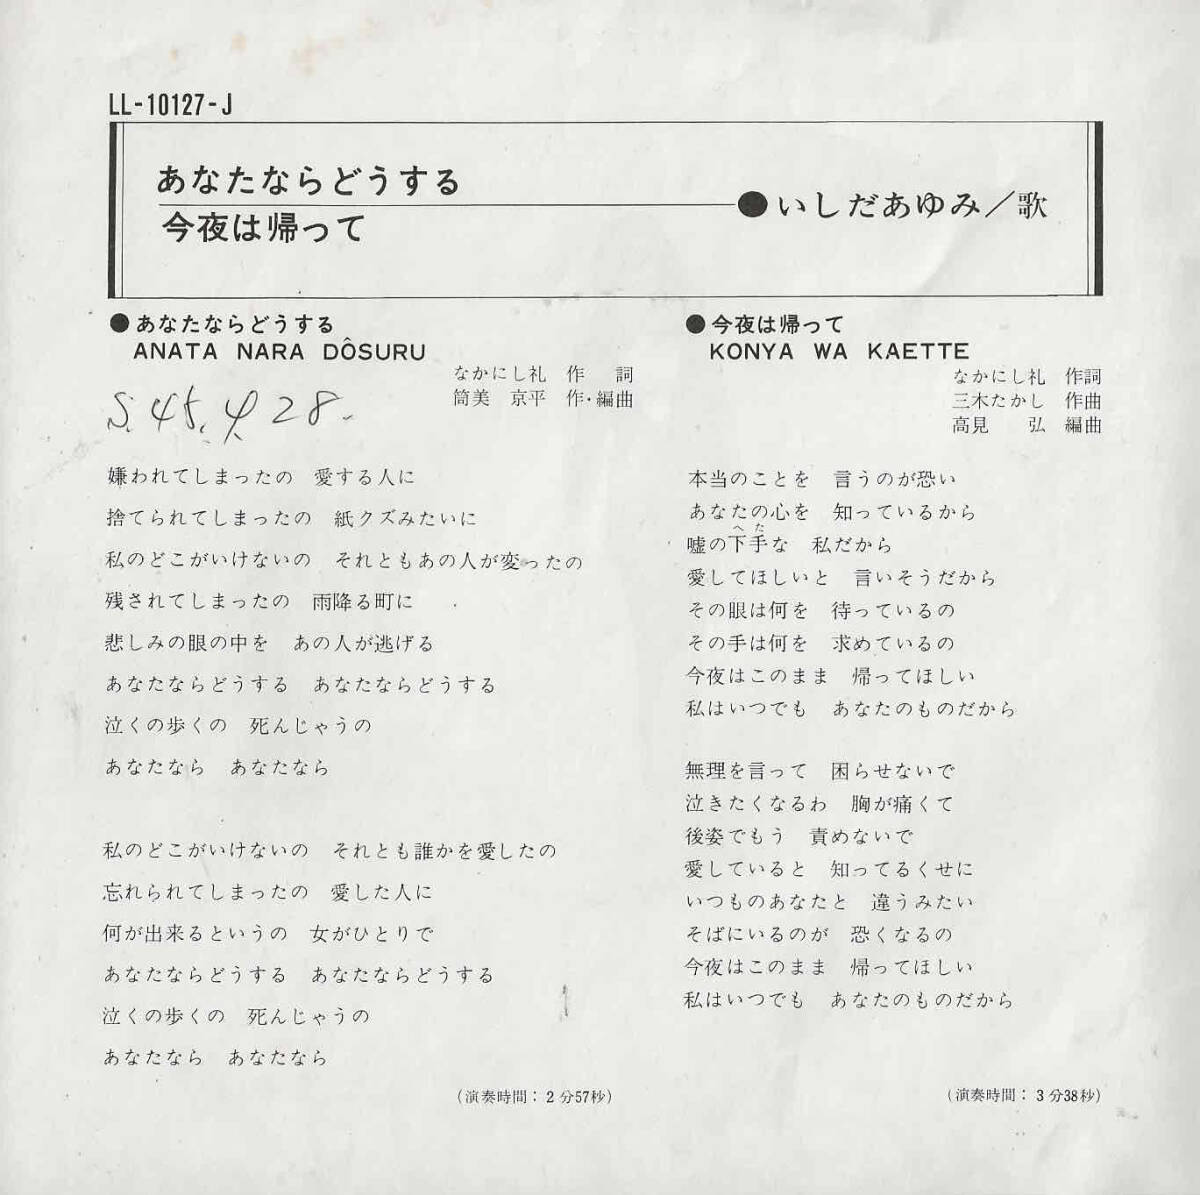 LL-10127-J
あなたならどうする
今夜は帰って
●いしだあゆみ/歌
●あなたならどうする
ANATA NARA DÔSURU
なかにし礼 作 詞
筒美 京平 作・編曲
S.45.4.28.
嫌われてしまったの 愛する人に
捨てられてしまったの 紙クズみたいに
私のどこがいけないの それともあの人が変ったの
残されてしまったの 雨降る町に
悲しみの眼の中を あの人が逃げる
あなたならどうする あなたならどうする
泣くの歩くの 死んじゃうの
あなたなら あなたなら
私のどこがいけないの それとも誰かを愛したの
忘れられてしまったの 愛した人に
何が出来るというの 女がひとりで
あなたならどうする あなたならどうする
泣くの歩くの 死んじゃうの
あなたなら あなたなら
(演奏時間:2分57秒)
●今夜は帰って
KONYA WA KAETTE
なかにし礼 作詞
三木たかし 作曲
高見 弘 編曲
本当のことを 言うのが恐い
あなたの心を 知っているから
へた
嘘の下手な 私だから
愛してほしいと 言いそうだから
その眼は何を 待っているの
その手は何を 求めているの
今夜はこのまま 帰ってほしい
私はいつでも あなたのものだから
無理を言って 困らせないで
泣きたくなるわ 胸が痛くて
後姿でもう 責めないで
愛していると 知ってるくせに
いつものあなたと 違うみたい
そばにいるのが 恐くなるの
今夜はこのまま 帰ってほしい
私はいつでも あなたのものだから
(演奏時間:3分38秒)